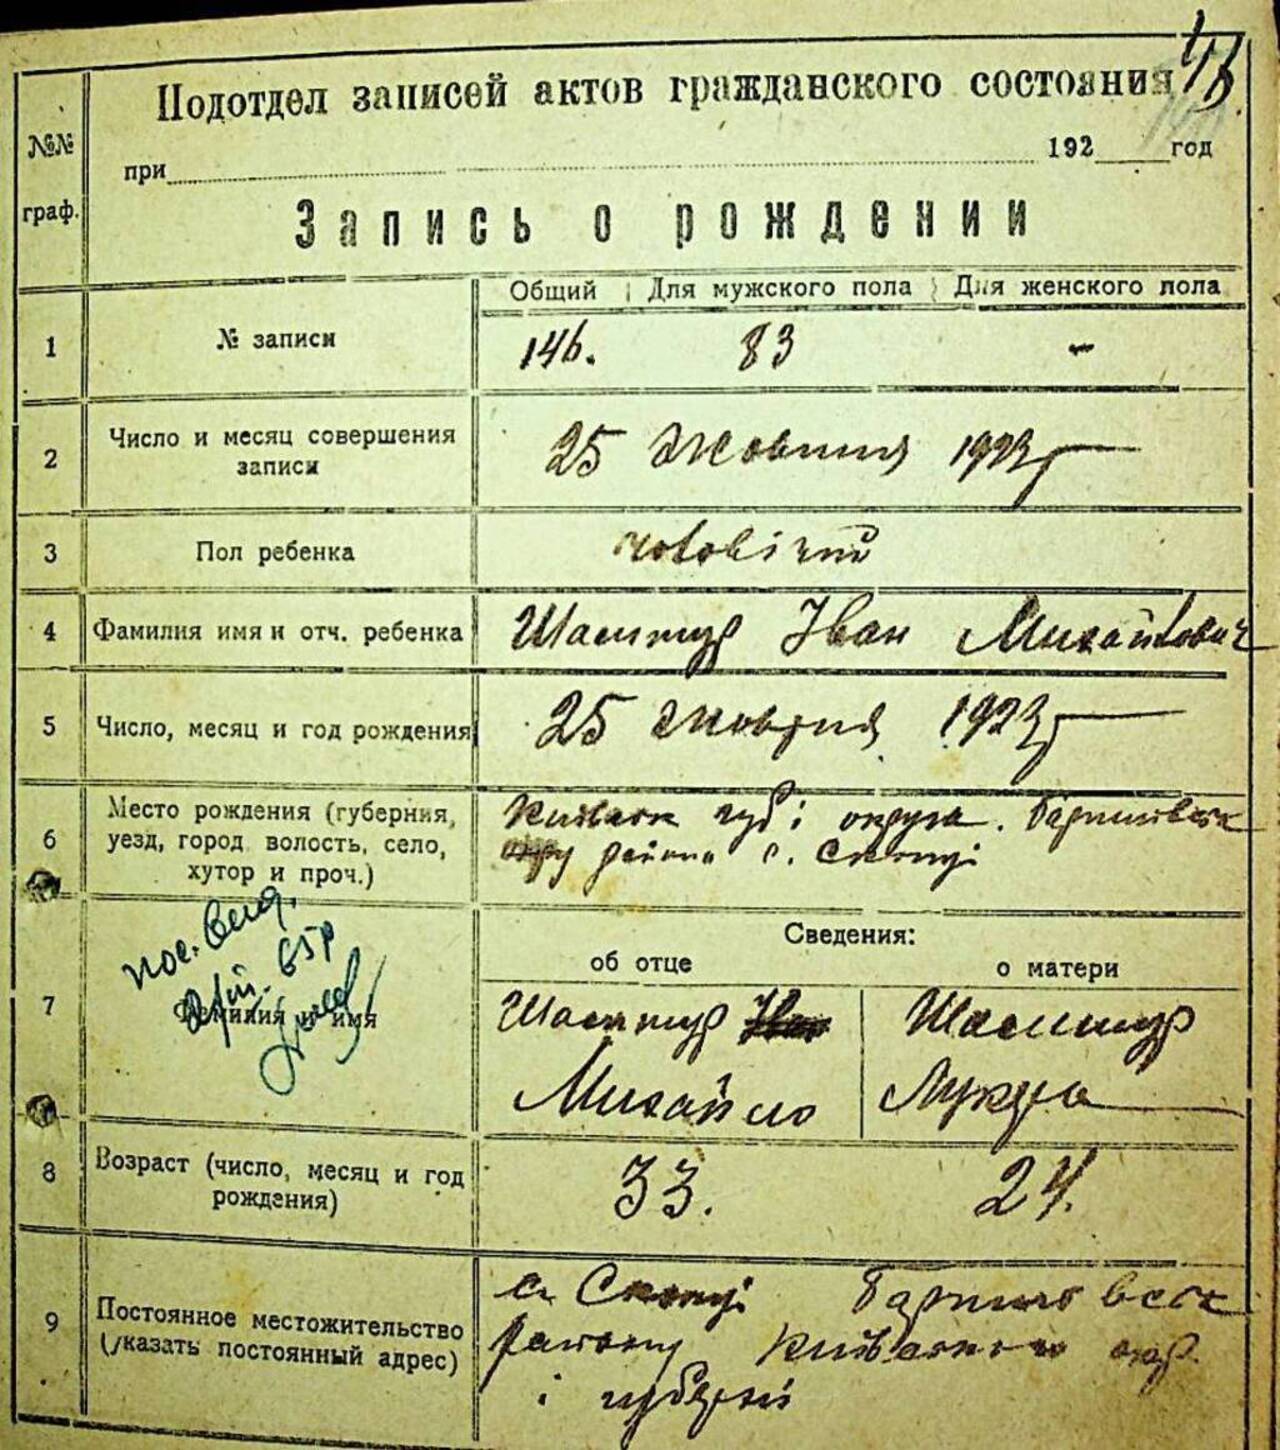 146
Подотдел записей актов гражданского состояния
при 192 год
№№ граф.
Запись о рождении
Общий Для мужского пола Для женского пола
1 № записи 146. 83 -
2 Число и месяц совершения записи 25 Жовтня 1923 г
3 Пол ребенка чоловічий
4 Фамилия имя и отч. ребенка Іван Михайлович
5 Число, месяц и год рождения 25 жовтня 1923 г
6 Место рождения (губерния, уезд, город волость, село, хутор и проч.)
Київськ губ і округа. Баришівськ
района с.
Сведения:
об отце о матери
7 Фамилия и имя
Михайло
8 Возраст (число, месяц и год рождения) 33. 24.
9 Постоянное местожительство (указать постоянный адрес)
с. Баришівськ
району Київського окр.
і губернії